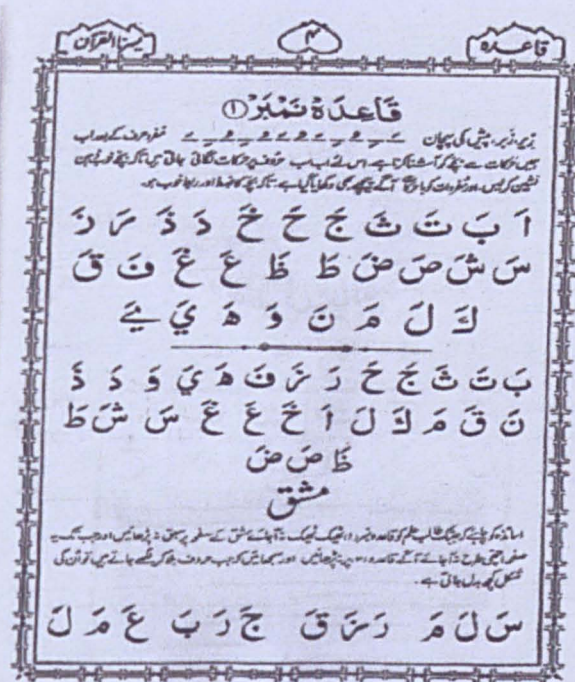 قاعدہ ۴ یسرنا القرآن
قَاعِدَہْ نَمْبَرْ ①
زیر، زبر، پیش کی پہچان مفرد حروف کے بعد اب
ہمیں حرکات سے بچے کو آشنا کرنا ہے۔ اس لئے اب حروف پر حرکات لگائی جاتی ہیں تاکہ بچے خوب ذہن
نشین کر لیں۔ اور مفردات کو آگے پیچھے بھی دکھایا گیا ہے۔ تاکہ بچے کا ضبط اور رابطہ خوب ہو۔
اَ بَ تَ ثَ جَ حَ خَ دَ ذَ رَ زَ
سَ شَ صَ ضَ طَ ظَ عَ غَ فَ قَ
كَ لَ مَ نَ وَ هَ يَ ےَ
بَ تَ ثَ جَ حَ رَ زَ فَ هَ يَ وَ دَ ذَ
نَ قَ مَ كَ لَ اَ خَ عَ غَ سَ شَ طَ
ظَ صَ ضَ
مشق
اساتذہ کو چاہئے کہ جب تک طالب علم کو قاعدہ نمبر ۱، ٹھیک ٹھیک نہ آ جائے مشق کے صفحہ پر سبق نہ پڑھائیں اور جب تک یہ
صفحہ اچھی طرح نہ آ جائے آگے قاعدہ نہ پڑھائیں اور سمجھائیں کہ جب حروف ملا کر لکھے جاتے ہیں تو ان کی
شکل کچھ بدل جاتی ہے۔
سَ لَ مَ رَ زَ قَ جَ رَ بَ عَ مَ لَ